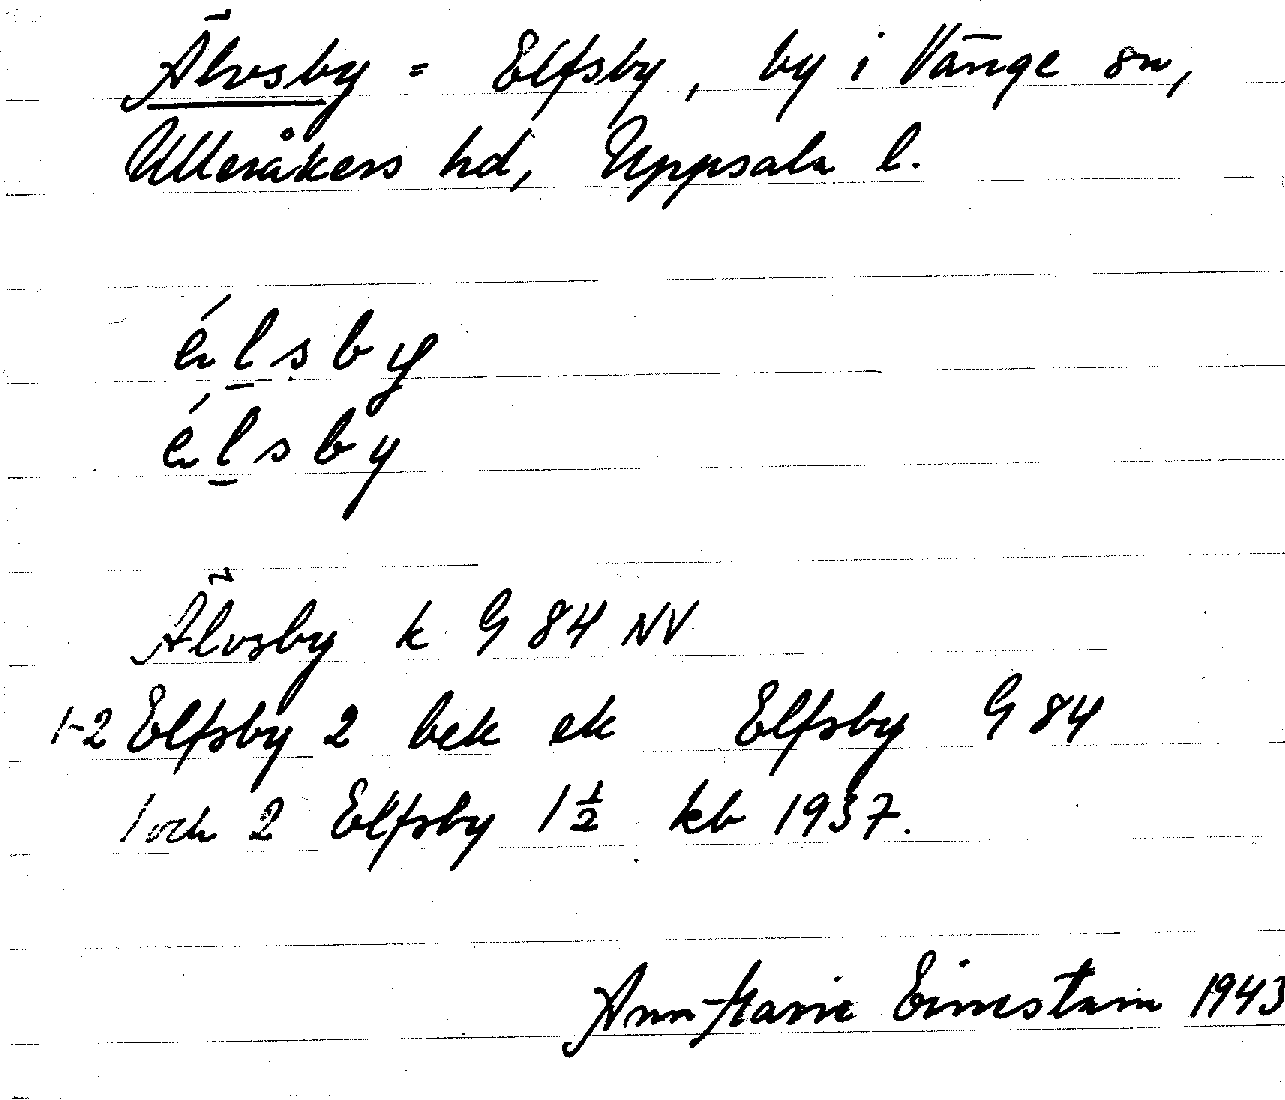 Älvsby = Elfsby, by i Vänge sn,
Ulleråkers hd, Uppsala l.
élsby
élsby
Älvsby k G 84 NV
1-2 Elfsby 2 bek ek Elfsby G 84
1 och 2 Elfsby 1 ½ kb 1937.
Ann-Marie 1943